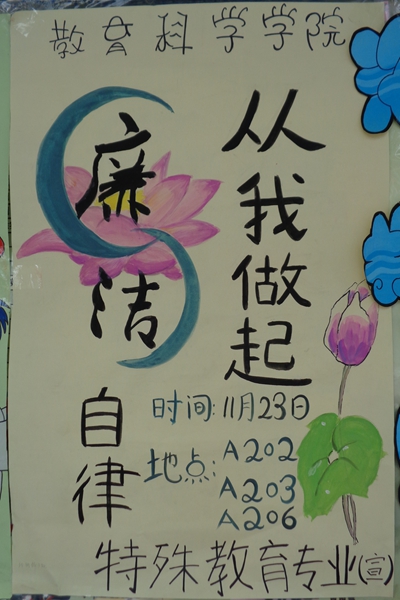 教育科学学院
廉洁
自律
从我做起
时间:11月23日
地点:A202
A203
A206
特殊教育专业(宣)